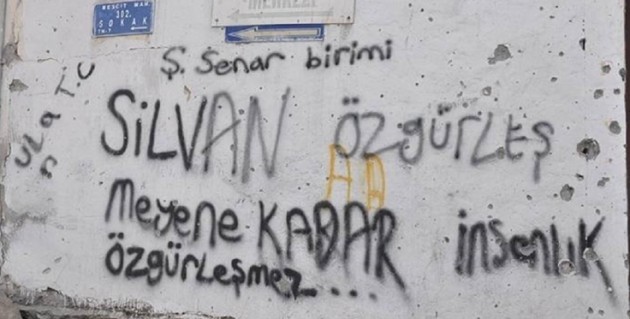 MESCİT MAH.
102.
SOKAK
MERKEZİ
Ş. Senar birimi
ULA T.C
SİLVAN ÖZgÜRLEŞ
meyene KADAR insanlık
ÖZgürLeşmez....